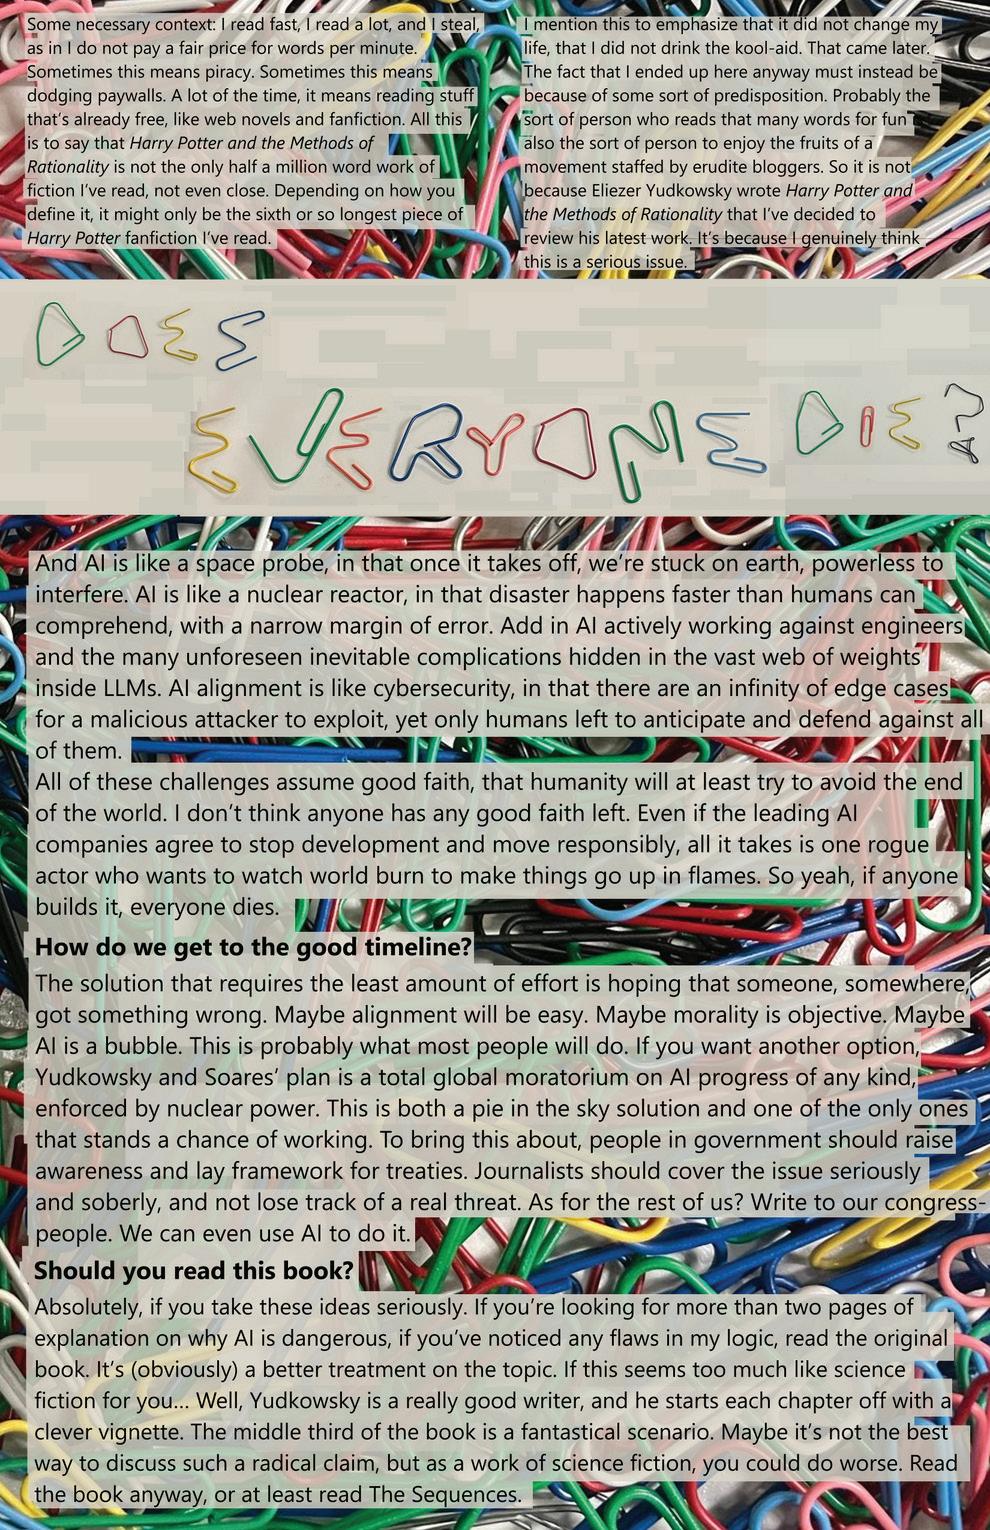 Some necessary context: I read fast, I read a lot, and I steal,
as in I do not pay a fair price for words per minute.
Sometimes this means piracy. Sometimes this means
dodging paywalls. A lot of the time, it means reading stuff
that's already free, like web novels and fanfiction. All this
is to say that Harry Potter and the Methods of
Rationality is not the only half a million word work of
fiction I've read, not even close. Depending on how you
define it, it might only be the sixth or so longest piece of
Harry Potter fanfiction I've read.
I mention this to emphasize that it did not change my
life, that I did not drink the kool-aid. That came later.
The fact that I ended up here anyway must instead be
because of some sort of predisposition. Probably the
sort of person who reads that many words for fun is
also the sort of person to enjoy the fruits of a
movement staffed by erudite bloggers. So it is not
because Eliezer Yudkowsky wrote Harry Potter and
the Methods of Rationality that I've decided to
review his latest work. It's because I genuinely think
this is a serious issue.
DOES
EVERYONE DIE?
And AI is like a space probe, in that once it takes off, we're stuck on earth, powerless to
interfere. AI is like a nuclear reactor, in that disaster happens faster than humans can
comprehend, with a narrow margin of error. Add in AI actively working against engineers
and the many unforeseen inevitable complications hidden in the vast web of weights
inside LLMs. AI alignment is like cybersecurity, in that there are an infinity of edge cases
for a malicious attacker to exploit, yet only humans left to anticipate and defend against all
of them.
All of these challenges assume good faith, that humanity will at least try to avoid the end
of the world. I don't think anyone has any good faith left. Even if the leading AI
companies agree to stop development and move responsibly, all it takes is one rogue
actor who wants to watch world burn to make things go up in flames. So yeah, if anyone
builds it, everyone dies.
How do we get to the good timeline?
The solution that requires the least amount of effort is hoping that someone, somewhere,
got something wrong. Maybe alignment will be easy. Maybe morality is objective. Maybe
AI is a bubble. This is probably what most people will do. If you want another option,
Yudkowsky and Soares' plan is a total global moratorium on AI progress of any kind,
enforced by nuclear power. This is both a pie in the sky solution and one of the only ones
that stands a chance of working. To bring this about, people in government should raise
awareness and lay framework for treaties. Journalists should cover the issue seriously
and soberly, and not lose track of a real threat. As for the rest of us? Write to our congress-
people. We can even use AI to do it.
Should you read this book?
Absolutely, if you take these ideas seriously. If you're looking for more than two pages of
explanation on why AI is dangerous, if you've noticed any flaws in my logic, read the original
book. It's (obviously) a better treatment on the topic. If this seems too much like science
fiction for you... Well, Yudkowsky is a really good writer, and he starts each chapter off with a
clever vignette. The middle third of the book is a fantastical scenario. Maybe it's not the best
way to discuss such a radical claim, but as a work of science fiction, you could do worse. Read
the book anyway, or at least read The Sequences.